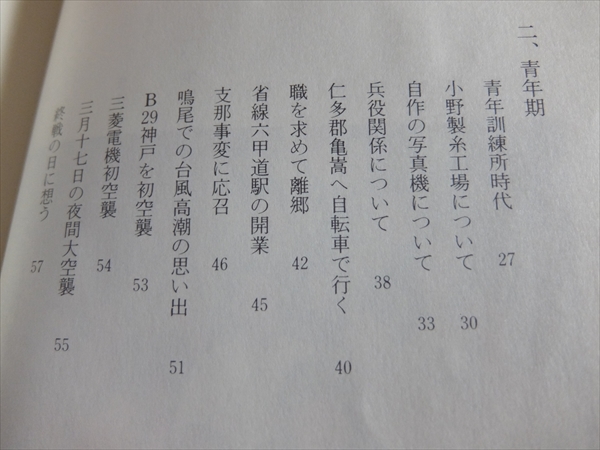 二、青年期
青年訓練所時代 27
小野製糸工場について 30
自作の写真機について 33
兵役関係について 38
仁多郡亀嵩へ自転車で行く 40
職を求めて離郷 42
省線六甲道駅の開業 45
支那事変に応召 46
鳴尾での台風高潮の思い出 51
B29神戸を初空襲 53
三菱電機初空襲 54
三月十七日の夜間大空襲 55
終戦の日に想う 57